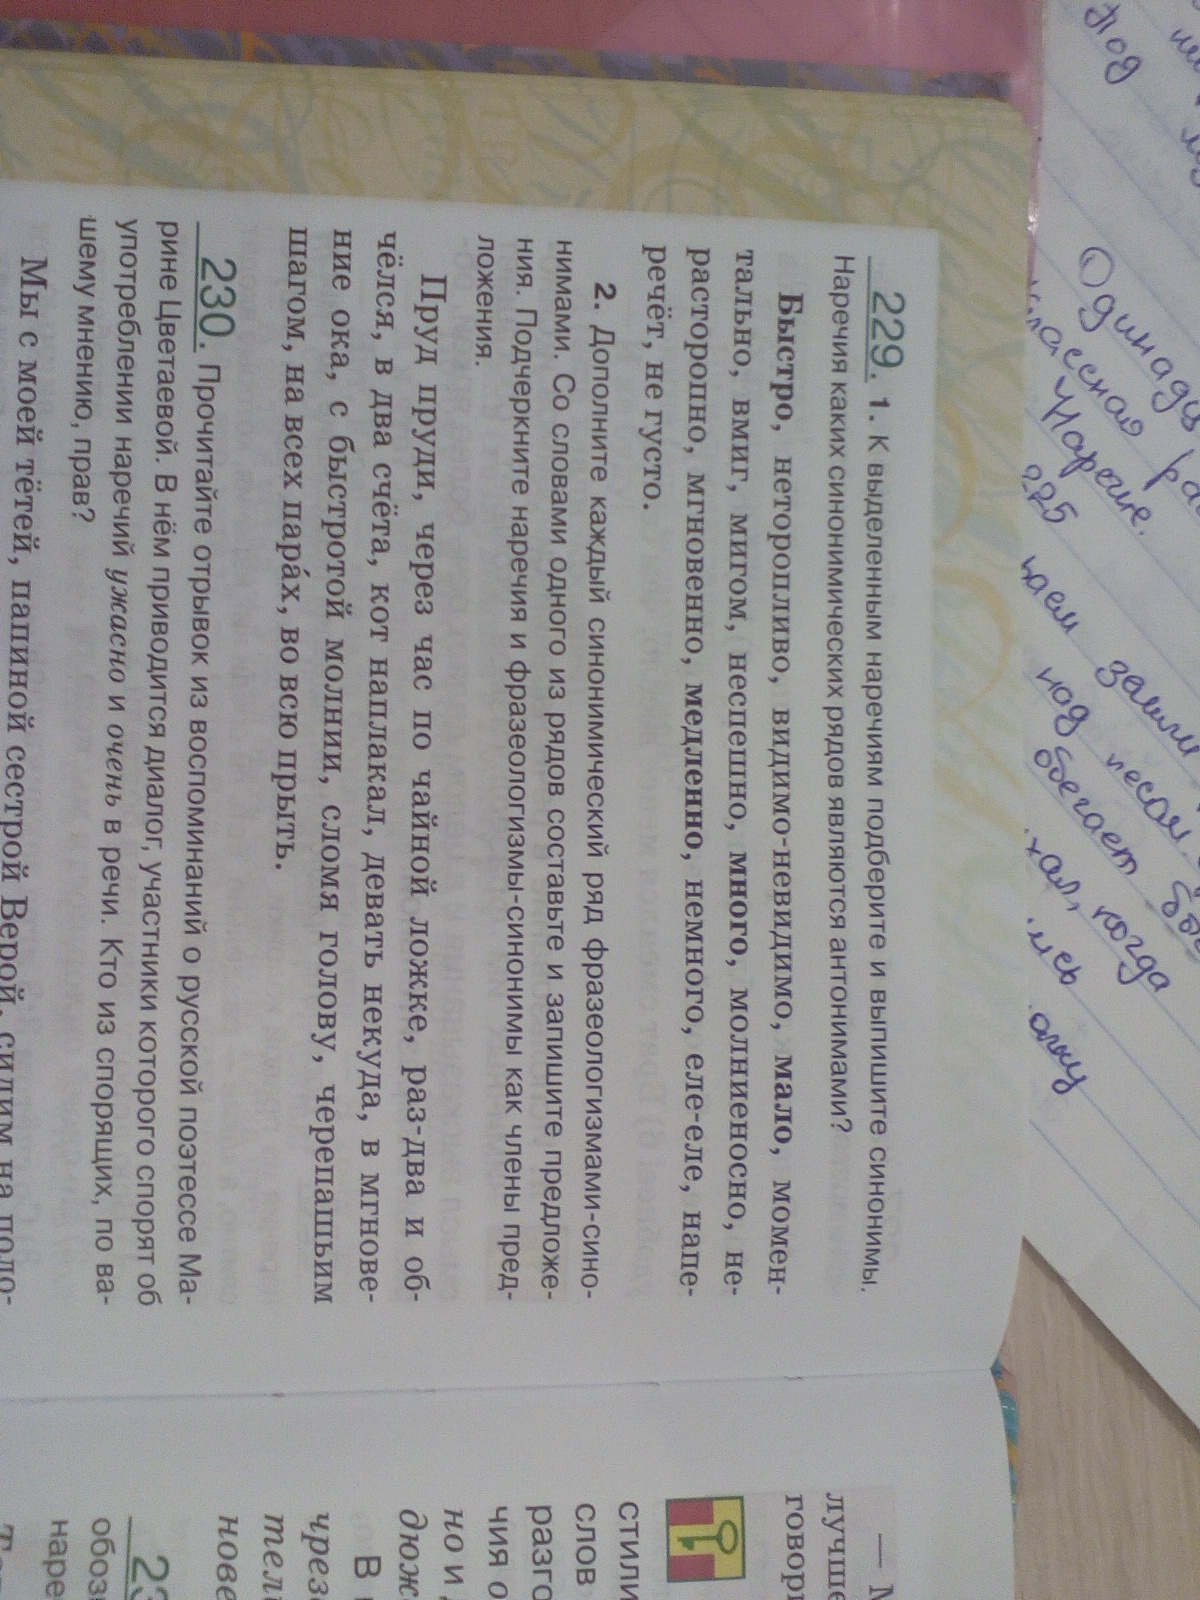 229. 1. К выделенным наречиям подберите и выпишите синонимы.
Наречия каких синонимических рядов являются антонимами?
Быстро, неторопливо, видимо-невидимо, мало, момен-
тально, вмиг, мигом, неспешно, много, молниеносно, не-
расторопно, мгновенно, медленно, немного, еле-еле, напе-
речёт, не густо.
2. Дополните каждый синонимический ряд фразеологизмами-сино-
нимами. Со словами одного из рядов составьте и запишите предложе-
ния. Подчеркните наречия и фразеологизмы-синонимы как члены пред-
ложения.
Пруд пруди, через час по чайной ложке, раз-два и об-
чёлся, в два счёта, кот наплакал, девать некуда, в мгнове-
ние ока, с быстротой молнии, сломя голову, черепашьим
шагом, на всех пара́х, во всю прыть.
230. Прочитайте отрывок из воспоминаний о русской поэтессе Ма-
рине Цветаевой. В нём приводится диалог, участники которого спорят об
употреблении наречий ужасно и очень в речи. Кто из спорящих, по ва-
шему мнению, прав?
Мы с моей тётей, папиной сестрой Верой, сидим на поло-
— М
лучше
говори
стили
слов
разго
чия о
но и
дюж
В
чрез
тел
нове
23
обоз
наре
под
Одинадц
классная ра
Наречие.
225
цаем зашли
под лесом
бегает бы
хал, когда